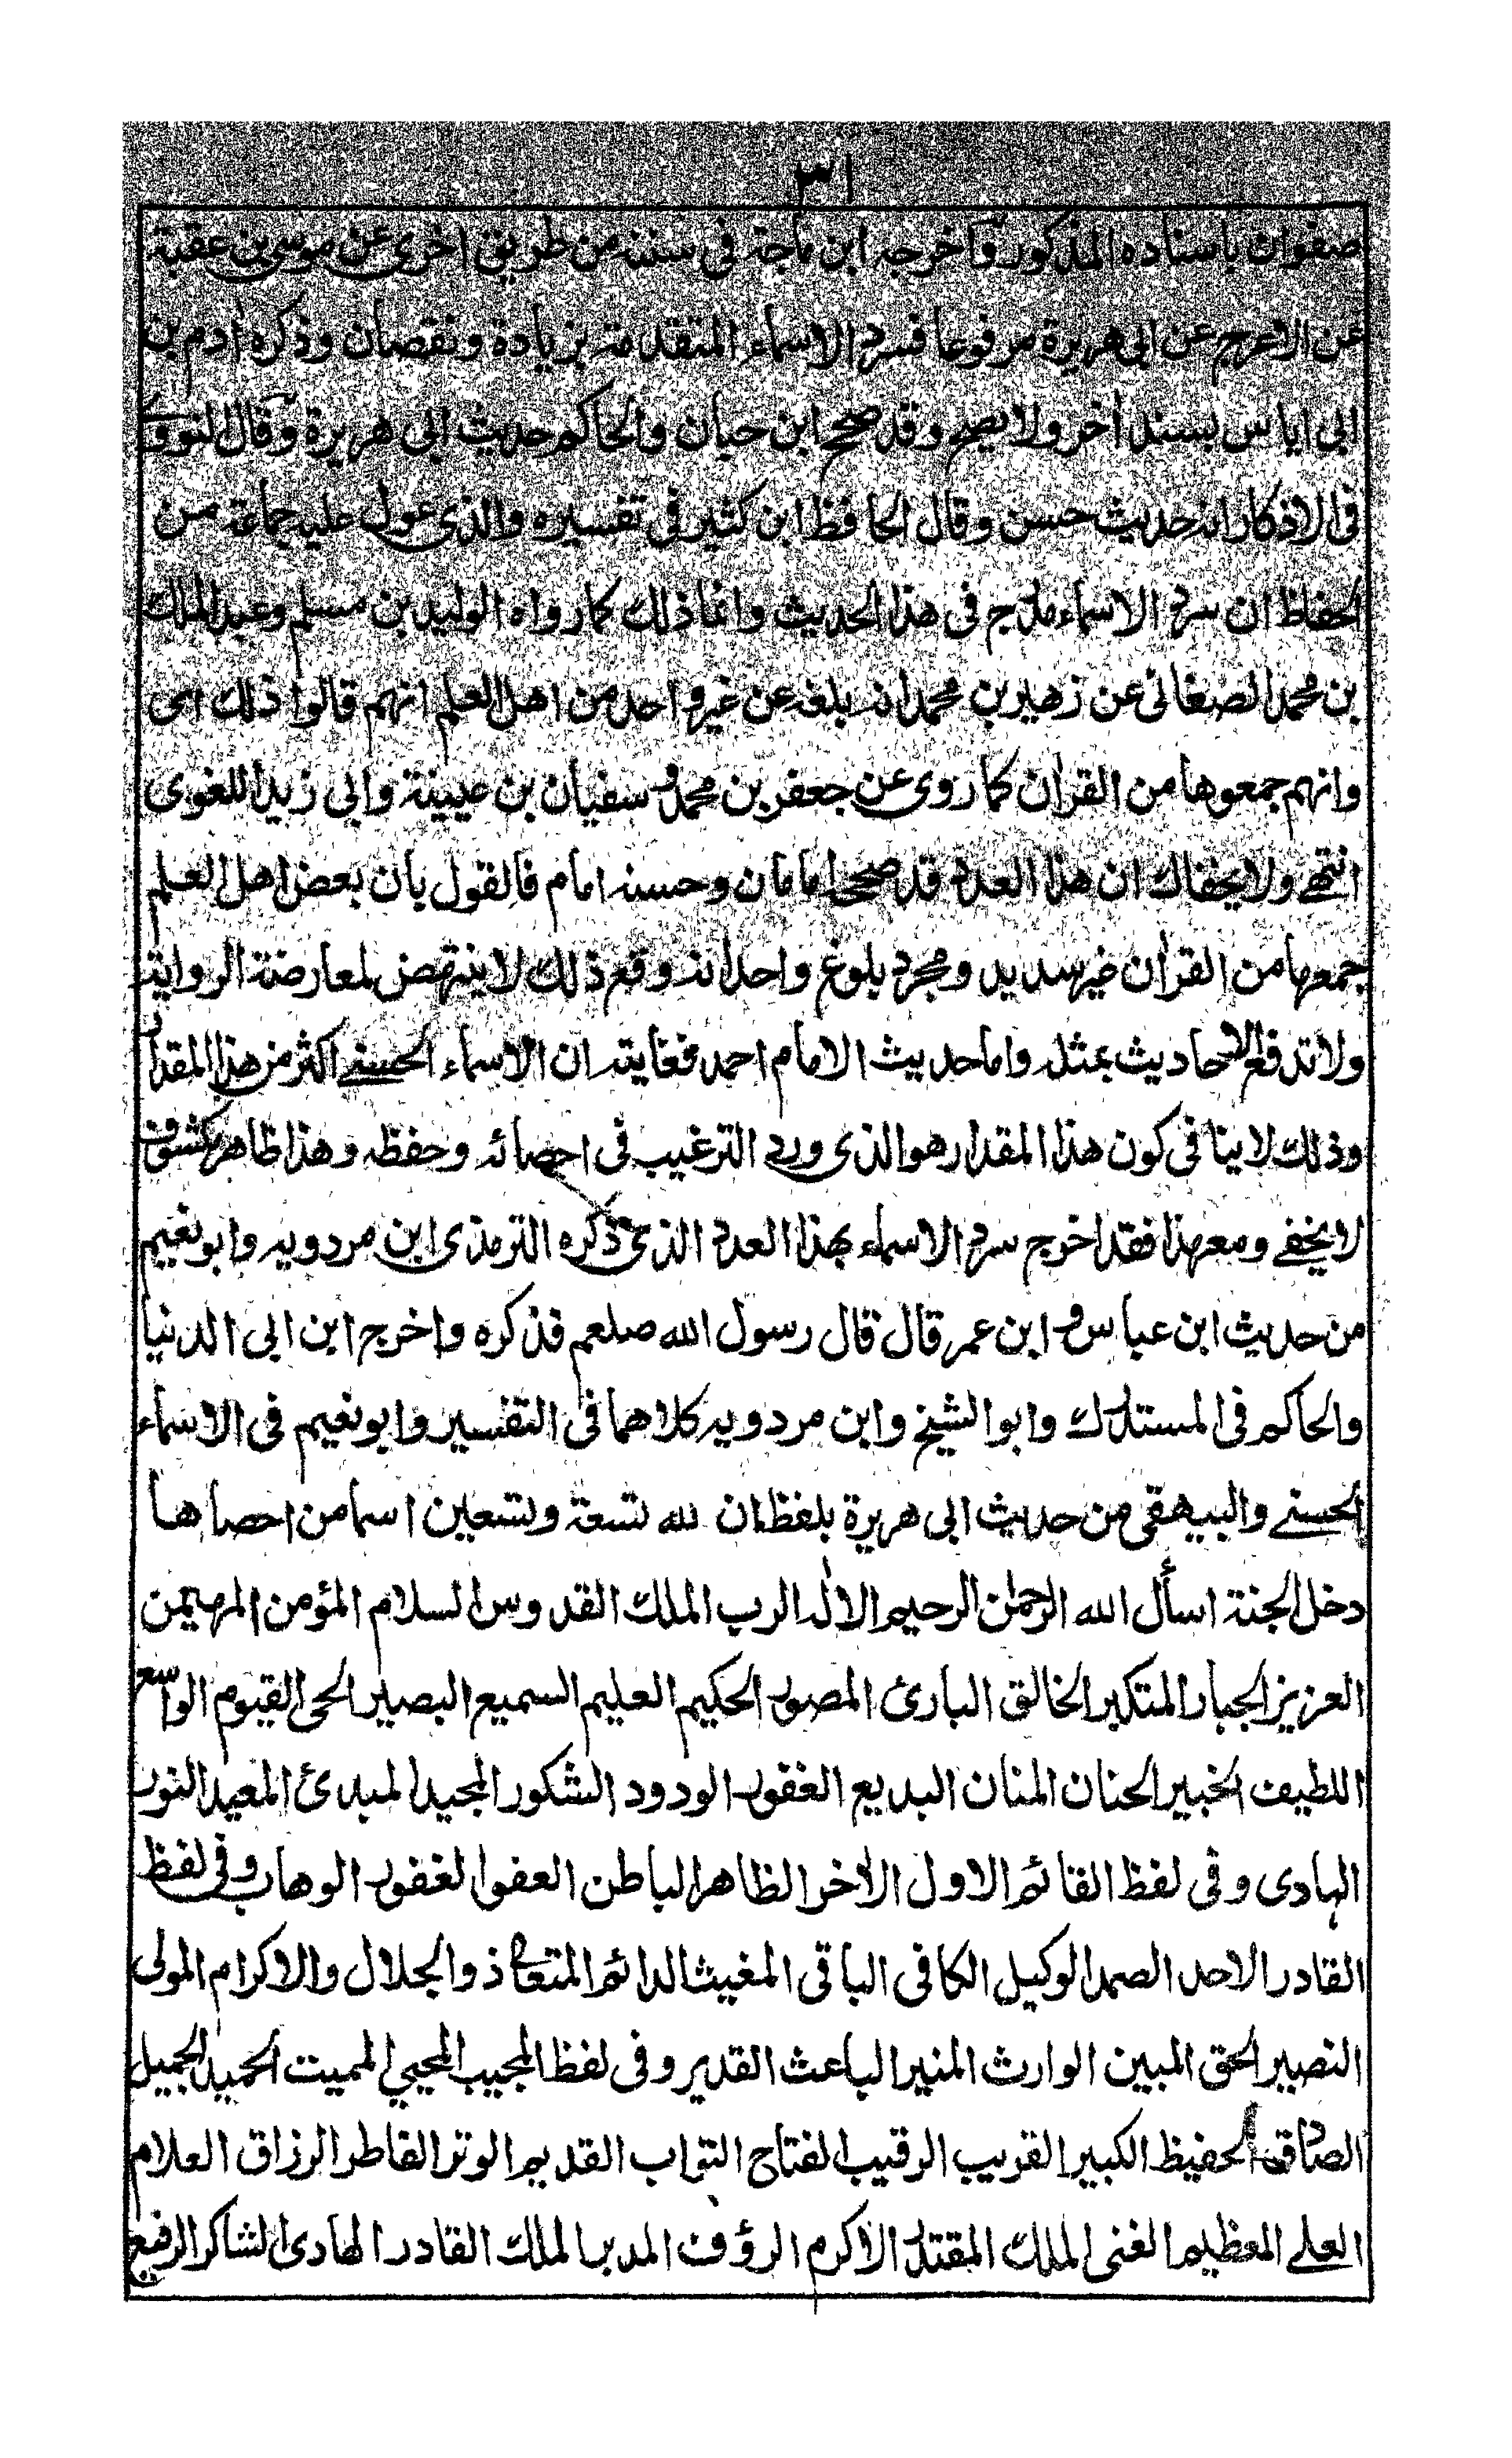 ٣١
صفوان باسناده المذكور واخرجه ابن ماجة فى سننه من طريق اخرى عن موسى بن عقبة
عن الاعرج عن ابى هريرة مرفوعا فسرد الاسماء المتقدمة بزيادة ونقصان وذكره ادم بن
ابى اياس بسند اخر ولا يصح وقد صحح ابن حبان والحاكم حديث ابى هريرة وقال النووى
فى الاذكار انه حديث حسن وقال الحافظ ابن كثير فى تفسيره والذى عول عليه جماعة من
الحفاظ ان سرد الاسماء مدرج فى هذا الحديث وانما ذلك كما رواه الوليد بن مسلم وعبد الملك
بن محمد الصغانى عن زهير بن محمد انه بلغه عن غير واحد من اهل العلم انهم قالوا ذلك اى
وانهم جمعوها من القرآن كما روى عن جعفر بن محمد و سفيان بن عيينة وابى زيد اللغوى
انتهى ولا يخفاك ان هذا العدد قد صححه امامان وحسنه امام فالقول بان بعض اهل العلم
جمعها من القرآن غير سديد ومجرد بلوغ واحد انه وقع ذلك لا ينتهض لمعارضة الرواية
ولا تدفع الاحاديث بمثله واما حديث الامام احمد فغايته ان الاسماء الحسنى اكثر من هذا المقدار
وذلك لا ينافى كون هذا المقدار هو الذى ورد الترغيب فى احصائه وحفظه وهذا ظاهر مكشوف
لا يخفى ومع هذا فقد اخرج سرد الاسماء بهذا العدد الذى ذكره الترمذى ابن مردويه وابو نعيم
من حديث ابن عباس و ابن عمر قال قال رسول الله صلعم فذكره واخرج ابن ابى الدنيا
والحاكم فى المستدرك وابو الشيخ وابن مردويه كلاهما فى التفسير وابو نعيم فى الاسماء
الحسنى والبيهقى من حديث ابى هريرة بلفظ ان لله تسعة وتسعين اسما من احصاها
دخل الجنة اسأل الله الرحمٰن الرحيم الالٰه الرب الملك القدوس السلام المؤمن المهيمن
العزيز الجبار المتكبر الخالق البارئ المصور الحكيم العليم السميع البصير الحى القيوم الواسع
اللطيف الخبير الحنان المنان البديع الغفور الودود الشكور المجيد المبدئ المعيد النور
الهادى وفى لفظ القائم الاول الآخر الظاهر الباطن العفو الغفور الوهاب وفى لفظ
القادر الاحد الصمد الوكيل الكافى الباقى المغيث الدائم المتعال ذو الجلال والاكرام المولى
النصير الحق المبين الوارث المنير الباعث القدير وفى لفظ المجيب المحيي المميت الحميد الجميل
الصادق الحفيظ الكبير القريب الرقيب الفتاح التواب القديم الوتر الفاطر الرزاق العلام
العلى العظيم الغنى المليك المقتدر الاكرم الرؤف المدبر المالك القادر الهادى الشاكر الرفيع